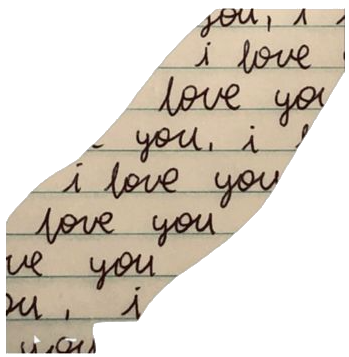 you, i
i love
love you
you, i
i love you
love you
you
, i
you